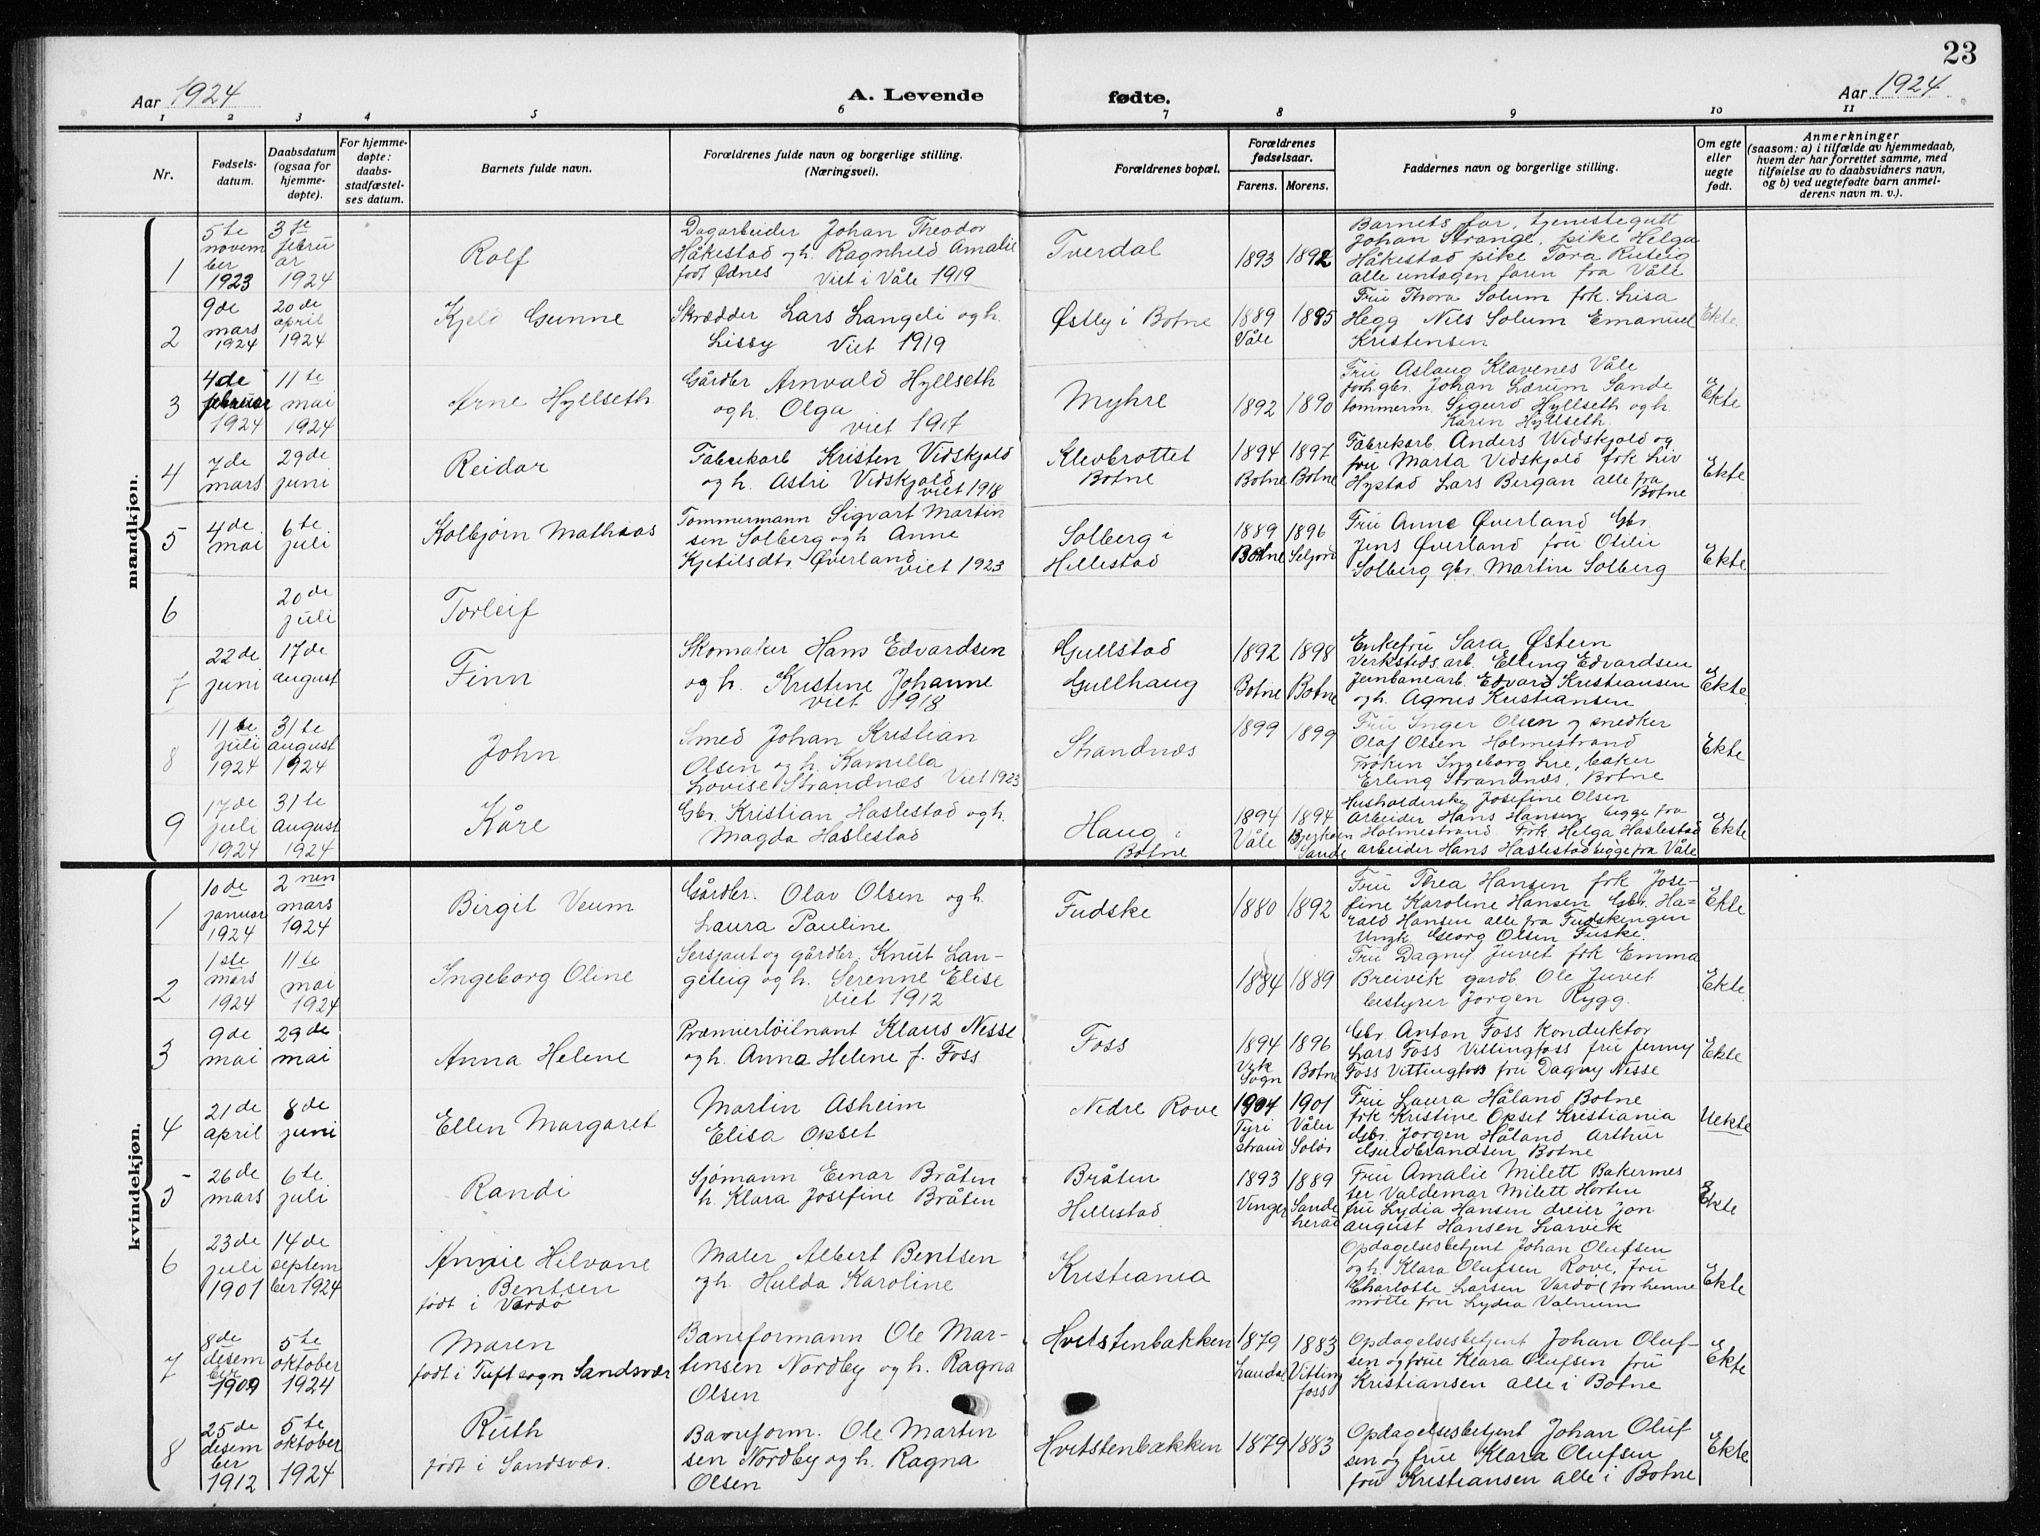 23
Aar 1924
A. Levende fødte.
Aar 1924
1 2 3 4 5 6 7 8 9 10 11
Nr.
Fødsels-
datum.
Daabsdatum
(ogsaa for
hjemme-
døpte).
For hjemme-
døpte:
daabs-
stadfæstel-
ses datum.
Barnets fulde navn.
Forældrenes fulde navn og borgerlige stilling.
(Næringsvei).
Forældrenes bopæl.
Forældrenes
fødselsaar.
Farens. Morens.
Faddernes navn og borgerlige stilling.
Om egte
eller
uegte
født.
Anmerkninger
(saasom: a) i tilfælde av hjemmedaab,
hvem der har forrettet samme, med
tilføielse av to daabsvidners navn,
og b) ved uegtefødte barn anmel-
derens navn m. v.).
mandkjøn.
1
5te
novem
ber
1923
3te
febru
ar
1924
Rolf
Dagarbeider Johan Theodor
Håkestad og h. Ragnhild Amalie
født Ødnes Viet i Våle 1919
Tverdal
1893 1892
Barnets far, tjenestegutt
Johan Strange, pike Helga
Håkestad pike Tora Ruteig
alle untagen faren fra Våle
2
9de
mars
1924
20de
april
1924
Kjeld Gunne
Skrædder Lars Langeli og h.
Lissy Viet 1919
Østby i Botne
1889 1895
Våle
Fru Thora Solum frk. Lisa
Hegg Nils Solum Emanuel
Kristensen
Ekte.
3
4de
februar
1924
11te
mai
1924
Arne Hyllseth
Gårdbr Arnvald Hyllseth
og h. Olga
viet 1917
Myhre
1892 1890
Fru Aslaug Klavenes Våle
forh. gbr. Johan Lærum Sande
tommerm. Sigurd Hyllseth og h.
Karen Hyllseth
Ekte
4
7de
mars
29de
juni
Reidar
Fabrikarb Kristen Vidskjold
og h. Astri Vidskjold
viet 1918
Klevbrottet
Botne
1894 1897
Botne Botne
Fabrikarb. Anders Widskjold og
fru Marta Vidskjold frk Liv
Hystad Lars Bergan alle fra
Botne
Ekte
5
4de
mai
6te
juli
Kolbjørn Mathias
Tommermann Sigvart Martin
sen Solberg og h. Anne
Kjetilsdtr Øverland
viet 1923
Solberg i
Hillestad
1889 1896
Botne Seljord
Fru Anne Øverland Gbr.
Jens Øverland fru Otilie
Solberg gbr. Martin Solberg
Ekte
6
20de
juli
Torleif
7
22de
juni
17de
august
Finn
Skomaker Hans Edvardsen
og h. Kristine Johanne
viet 1918
Gullstad
Gullhaug
1892 1898
Botne Botne
Enkefru Sara Østern
Verkstedsarb. Elling Edvardsen
Jernbanearb. Edvard Kristiansen
og h. Agnes Kristiansen
Ekte
8
11te
juli
1924
31te
august
1924
John
Smed Johan Kristian
Olsen og h. Kamilla
Lovise Strandnæs Viet 1923
Strandnæs
1899 1899
Fru Inger Olsen og snedker
Olaf Olsen Holmestrand
Frøken Ingeborg Lie, baker
Erling Strandnæs, Botne
Ekte
9
17de
juli
1924
31te
august
1924
Kåre
Gbr. Kristian Haslestad og h.
Magda Haslestad
Haug i
Botne
1894 1894
Våle
Sande
Husholderske Josefine Olsen
arbeider Hans Hansen begge fra
Holmestrand Frk Helga Haslestad
arbeider Hans Haslestad begge fra Våle
Ekte
kvindekjøn.
1
10de
januar
1924
2nen
mars
1924
Birgit Veum
Gårdbr. Olav Olsen og h.
Laura Pauline
Fudske
1880 1892
Fru Thea Hansen frk Jose-
fine Karoline Hansen Gbr. Ha-
rald Hansen alle fra Fudskengen
Ungk Georg Olsen Fuske.
Ekte
2
1ste
mars
1924
11te
mai
1924
Ingeborg Oline
Sersjant og gårdbr. Knut Lan-
geteig og h. Serenne Elise
viet 1912
1884 1889
Fru Dagny Juvet frk Emma
Breivik gardb. Ole Juvet
bestyrer Jorgen Rygg.
Ekte.
3
9de
mai
29de
mai
Anna Helene
Præmierløitnant Klaus Nesse
og h. Anna Helene f. Foss
Foss
1894 1896
Vik
Sogn Botne
Gbr. Anton Foss konduktor
Lars Foss Vittingfoss fru Jenny
Foss Vittingfos fru Dagny Nesse
Ekte
4
21de
april
8de
juni
Ellen Margaret
Martin Asheim
Elisa Opset
Nedre Rove
1904 1901
Tyri Våler
strand Solør
Fru Laura Håland Botne
frk Kristine Opset Kristiania
Gbr. Jorgen Håland Arthur
Guldbrandsen Botne
Uekte
5
26de
mars
6te
juli
Randi
Sjømann Einar Bråten
h. Klara Josefine Bråten
Bråten
Hillestad
1893 1889
Vinger Sande
herad
Fru Amalie Milett Bakermes
ter Valdemar Milett Horten
fru Lydia Hansen dreier Jon
august Hansen Larvik
Ekte
6
23de
juli
1901
14de
septem
ber 1924
Annie Hilvane
Bentsen
født i Vardø
Maler Albert Bentsen
og h. Hulda Karoline
Kristiania
Opdagelsesbetjent Johan Olufsen
og h. Klara Olufsen Rove, fru
Charlotte Larsen Vardø (for henne
møtte fru Lydia Valnum
Ekte
7
8de
desem
ber
1909
5te
oktober
1924
Maren
født i Tuft sogn Sandsvær
Baneformann Ole Mar-
tinsen Nordby og h. Ragna
Olsen
Hvitstenbakken
1879 1883
Laudal Vitting
foss
Opdagelsesbetjent Johan Oluf-
sen og frue Klara Olufsen fru
Kristiansen alle i Botne
Ekte
8
25de
desem
ber
1912
5te
oktober
1924
Ruth
født i Sandsvær.
Baneform. Ole Martin
sen Nordby og h. Ragna
Olsen
Hvitstenbakken
1879 1883
Opdagelsesbetjent Johan Oluf
sen og frue Klara Olufsen
fru Kristiansen alle i Botne
Ekte